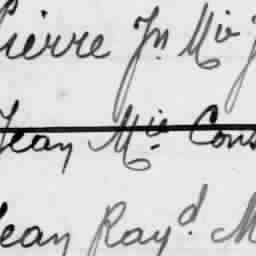 Pierre Jn. Mie J
Jean Mie. Cons
Jean Rayd. M